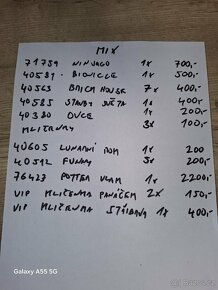 MIX
71759 NINJAGO 1x 700,-
40581 BIONICLE 1x 500,-
40563 BRICK HOUSE 7x 400,-
40585 STAVBY SVĚTA 1x 400,-
40380 OVCE 1x 200,-
KLÍČENKY 3x 100,-
40605 LUNÁRNÍ ROK 1x 200
40512 FUNKY 5x 200,-
76423 POTTER VLAK 1x 2200,-
VIP KLÍČENKA PANÁČEK 2x 150,-
VIP KLÍČENKA STŘÍBRNÁ 1x 400,-
Galaxy A55 5G